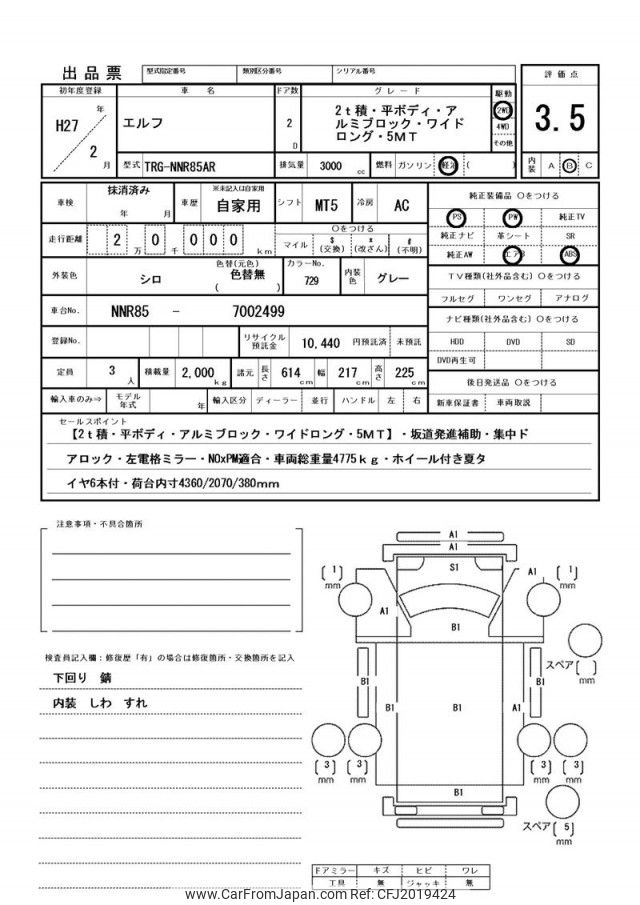 出品票 型式指定番号 類別区分番号 シリアル番号
初年度登録 車名 ドア数 グレード 駆動 評価点
H27 年 2 月 エルフ 2 D 2t積・平ボディ・ア
ルミブロック・ワイド
ロング・5MT
2WD
4WD
その他
3.5
型式 TRG-NNR85AR 排気量 3000 cc 燃料 ガソリン 軽油 ( ) 内装 A B C
車検 抹消済み 年 月 車歴 ※未記入は自家用 自家用 シフト MT5 冷房 AC 純正装備品 ○をつける
PS PW 純正TV
走行距離 2 万 0 千 0 0 0 km ○をつける
マイル $(交換) *(改ざん) #(不明)
純正ナビ 革シート SR
純正AW エアB ABS
外装色 シロ 色替(元色) 色替無 ( ) カラーNo. 729 内装色 グレー
TV種類(社外品含む) ○をつける
フルセグ ワンセグ アナログ
車台No. NNR85 - 7002499
ナビ種類(社外品含む) ○をつける
登録No. リサイクル預託金 10,440 円預託済 未預託
HDD DVD SD
DVD再生可
定員 3 人 積載量 2,000 kg 諸元 長さ 614 cm 幅 217 cm 高さ 225 cm
後日発送品 ○をつける
輸入車のみ⇒ モデル年式 年 輸入区分 ディーラー 並行 ハンドル 左 右 新車保証書 車両取説
セールスポイント
【2t積・平ボディ・アルミブロック・ワイドロング・5MT】・坂道発進補助・集中ド
アロック・左電格ミラー・NOxPM適合・車両総重量4775kg・ホイール付き夏タ
イヤ6本付・荷台内寸4360/2070/380mm
注意事項・不具合箇所
検査員記入欄:修復歴「有」の場合は修復箇所・交換箇所を記入
下回り 錆
内装 しわ すれ
A1
A1
S1
[ 1 ] mm A1 [ 1 ] mm
A1
B1
スペア[ ] mm
B1 B1 B1 A1 B1
[ 3 ] mm [ 3 ] mm [ 3 ] mm [ 3 ] mm
B1
スペア[ 5 ] mm
ドアミラー キズ ヒビ ワレ
工具 無 ジャッキ 無
www.CarFromJapan.com Ref: CFJ2019424